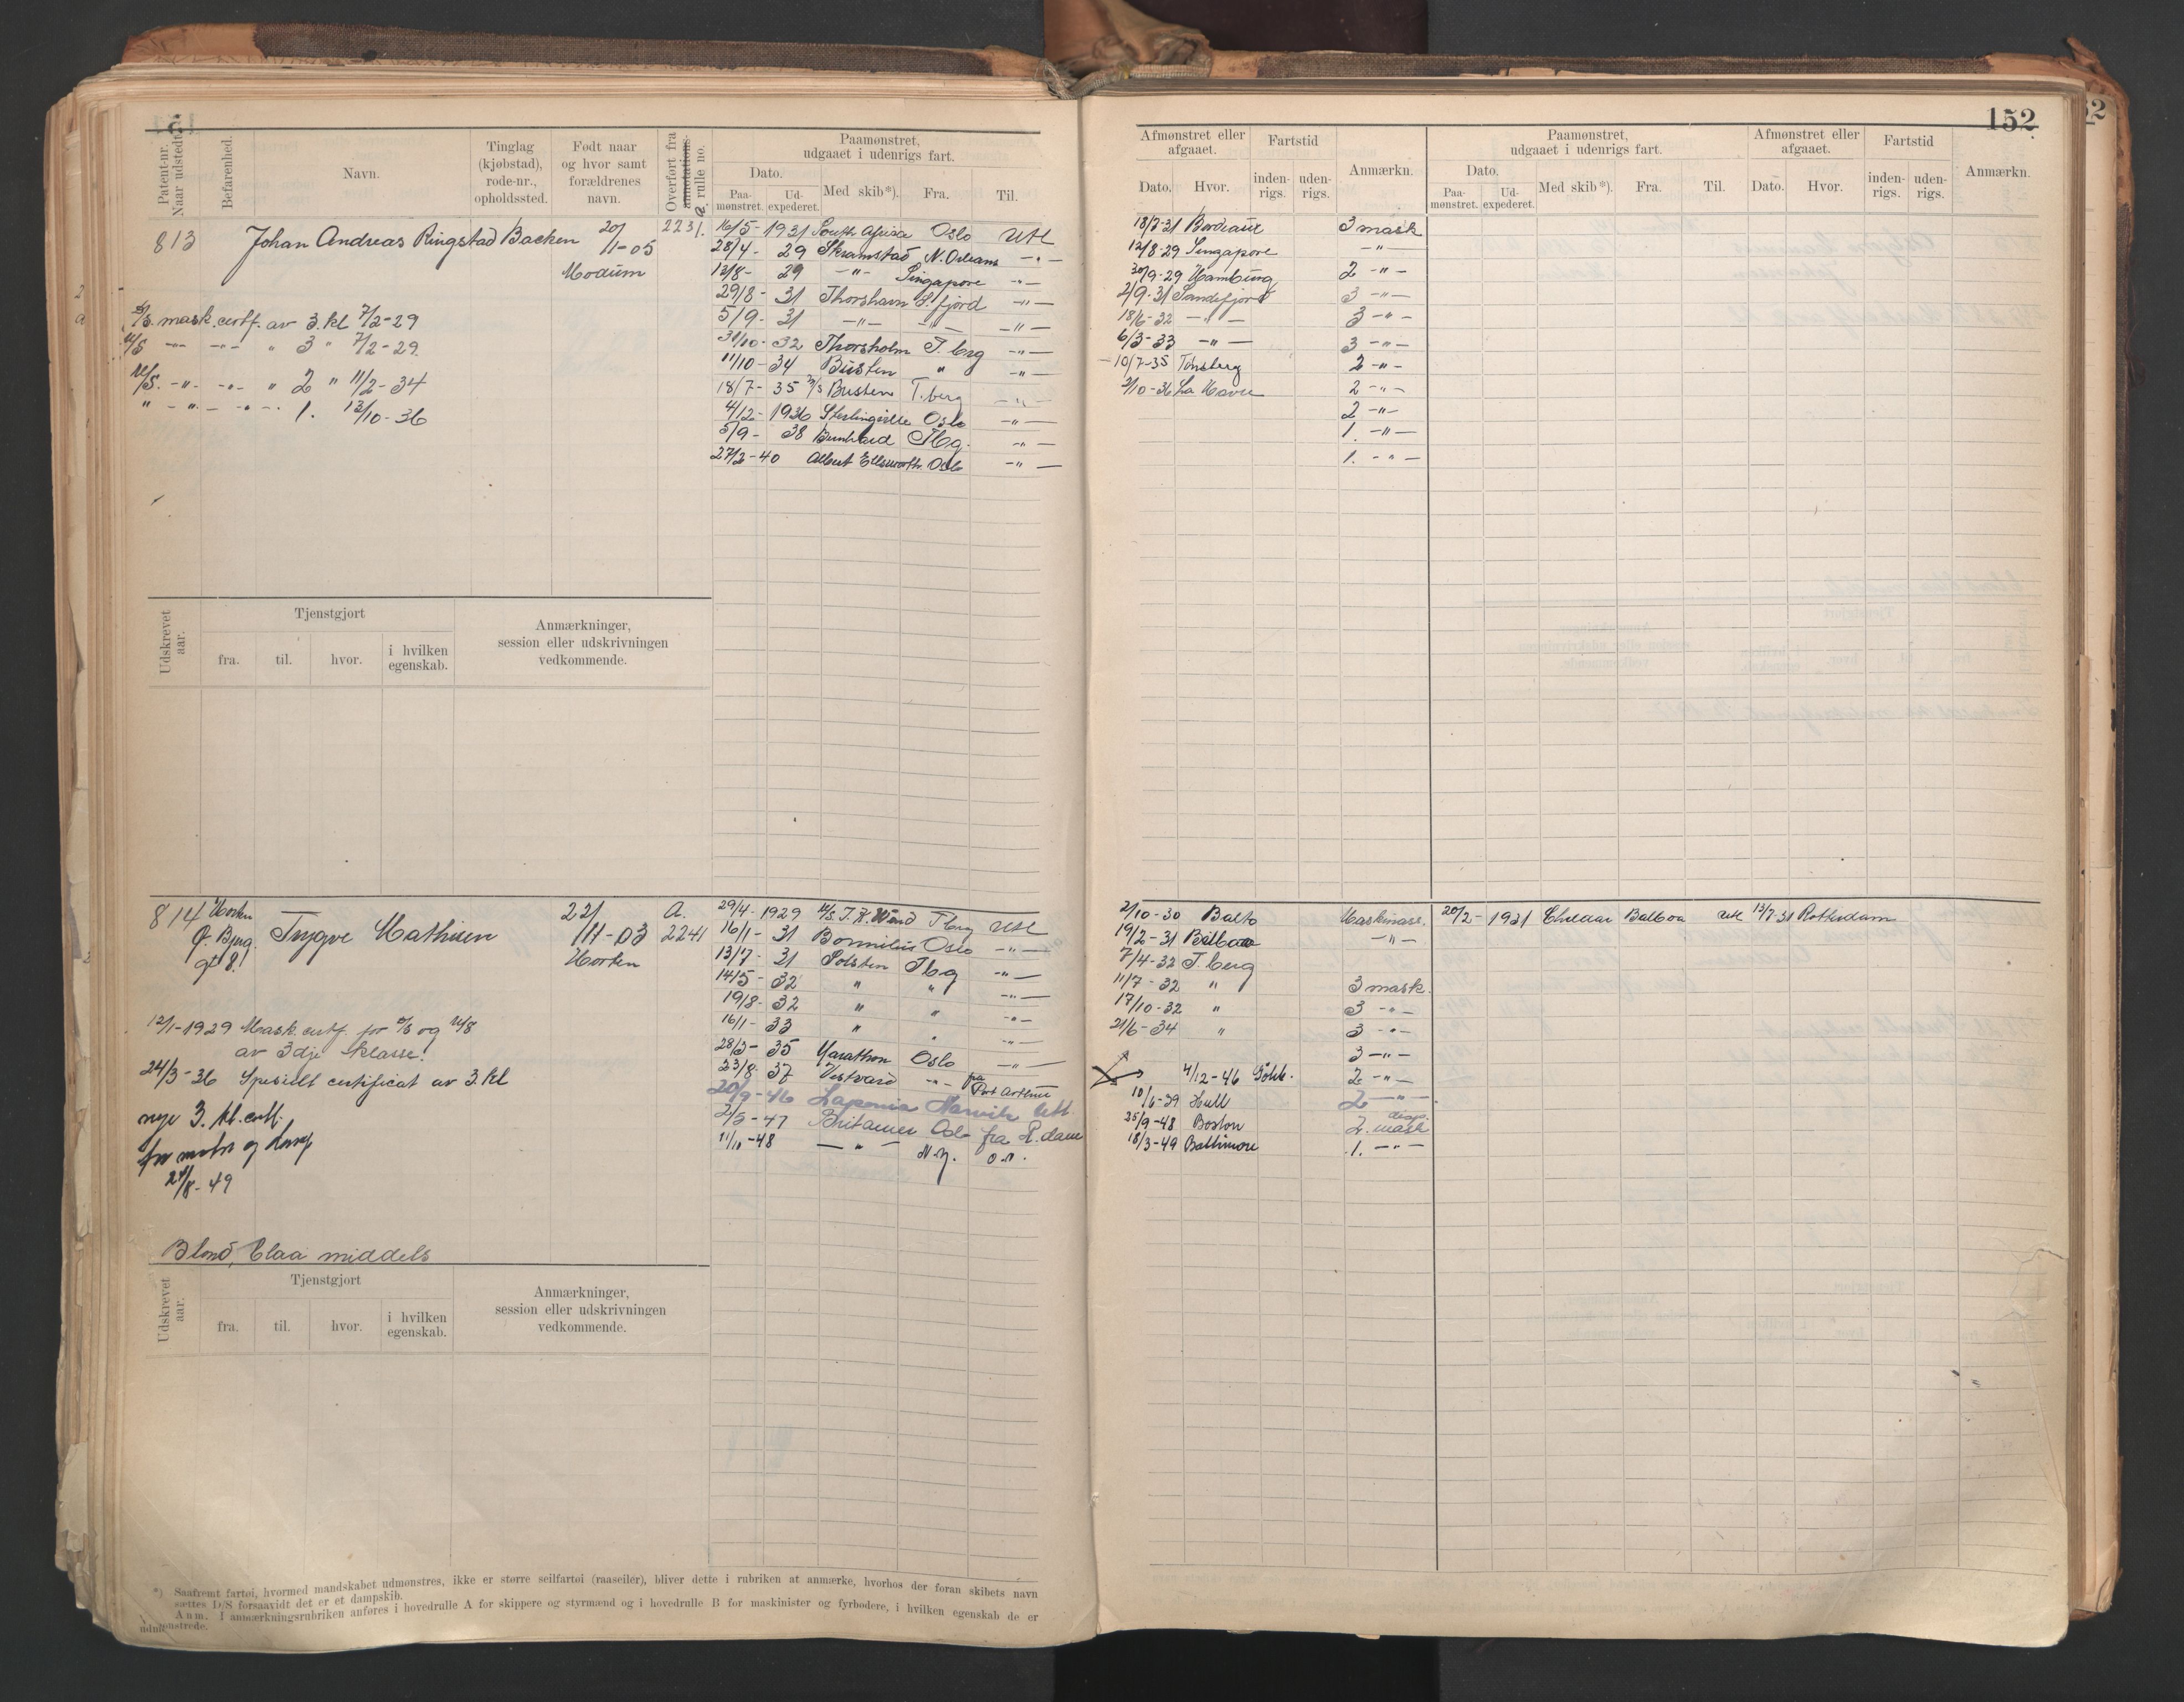 152
Patent-nr. Naar udstedt.
Befarenhed.
Navn.
Tinglag (kjøbstad), rode-nr., opholdssted.
Født naar og hvor samt forældrenes navn.
Overført fra annotations- rulle no.
Paamønstret, udgaaet i udenrigs fart.
Dato.
Paa-mønstret.
Ud-expederet.
Med skib*).
Fra.
Til.
Afmønstret eller afgaaet.
Dato.
Hvor.
Fartstid
inden-rigs.
uden-rigs.
Anmærkn.
Paamønstret, udgaaet i udenrigs fart.
Dato.
Paa-mønstret.
Ud-expederet.
Med skib*).
Fra.
Til.
Afmønstret eller afgaaet.
Dato.
Hvor.
Fartstid
inden-rigs.
uden-rigs.
Anmærkn.
813 Johan Andreas Ringstad Backen 20/11-05 Modum 2231.
D/S. mask. certf. av 3. kl 7/2-29
M/S -"- -"- " 3 " 7/2-29.
M/S. -"- -"- " 2 " 11/2-34
" -"- -"- 1. 13/10-36
16/5-1931 South Africa Oslo Utl 18/7-31 Bordeaux 3 mask
28/4-29 Skramstad N. Orleans -"- 12/8-29 Singapore -"-
12/8-29 -"- Singapore -"- 30/9-29 Hamburg 2 -"-
29/8-31 Thorshavn S.fjord -"- 2/9-31 Sandefjord 3 -"-
5/9-31 -"- -"- -"- 18/6-32 -"- 3 -"-
31/10-32 Thorsholm T.berg -"- 6/3-33 -"- 3 -"-
11/10-34 Busten " -"- 10/7-35 Tønsberg 2 -"-
18/7-35 M/S Busten T.berg -"- 2/10-36 La Havre 2 -"-
4/12-1936 Sterlingville Oslo -"- 2 -"-
5/9-38 Tbg. -"- 1. -"-
27/2-40 Albert Ellsworth Oslo -"- 1. -"-
Udskrevet aar.
Tjenstgjort
fra.
til.
hvor.
i hvilken egenskab.
Anmærkninger, session eller udskrivningen vedkommende.
814 Horten Trygve Mathisen 22/11-03 Horten A. 2241
12/1-1929 Mask. certf. for D/S og M/S
av 3dje klasse!
24/3-36 Specielt certificat av 3. kl
nye 3. kl. certf.
for motor og damp
24/8-49
29/4-1929 M/S Tbrg Utl 2/10-30 Balto Maskinass. 20/2-1931 Balboa Utl 13/7-31 Rotterdam
16/1-31 Oslo -"- 19/2-31 Balboa -"-
13/7-31 Solsten Tbg -"- 7/4-32 T.berg
14/5-32 " " -"- 11/7-32 " 3 mask.
19/8-32 " " -"- 17/10-32 " 3 -"-
16/1-33 " " -"- 21/6-34 " 3 -"-
28/3-35 Marathon Oslo -"- 3 -"-
23/8-37 Vestvard -"- fra Port Arthur 4/12-46 Götb. 2 -"-
20/9-46 Laponia Narvik Utl 10/6-39 Hull 2 -"-
2/9-47 Britamer Oslo fra R.dam 25/9-48 Boston 2. mask
11/10-48 -"- N.Y. 18/3-49 Baltimore 1. -"-
Blond, blaa middels
Udskrevet aar.
Tjenstgjort
fra.
til.
hvor.
i hvilken egenskab.
Anmærkninger, session eller udskrivningen vedkommende.
*) Saafremt fartøi, hvormed mandskabet udmønstres, ikke er større seilfartøi (raaseiler), bliver dette i rubriken at anmærke, hvorhos der foran skibets navn
sættes D/S forsaavidt det er et dampskib.
Anm. I anmærkningsrubriken anføres i hovedrulle A for skippere og styrmænd og i hovedrulle B for maskinister og fyrbødere, i hvilken egenskab de er
udmønstrede.